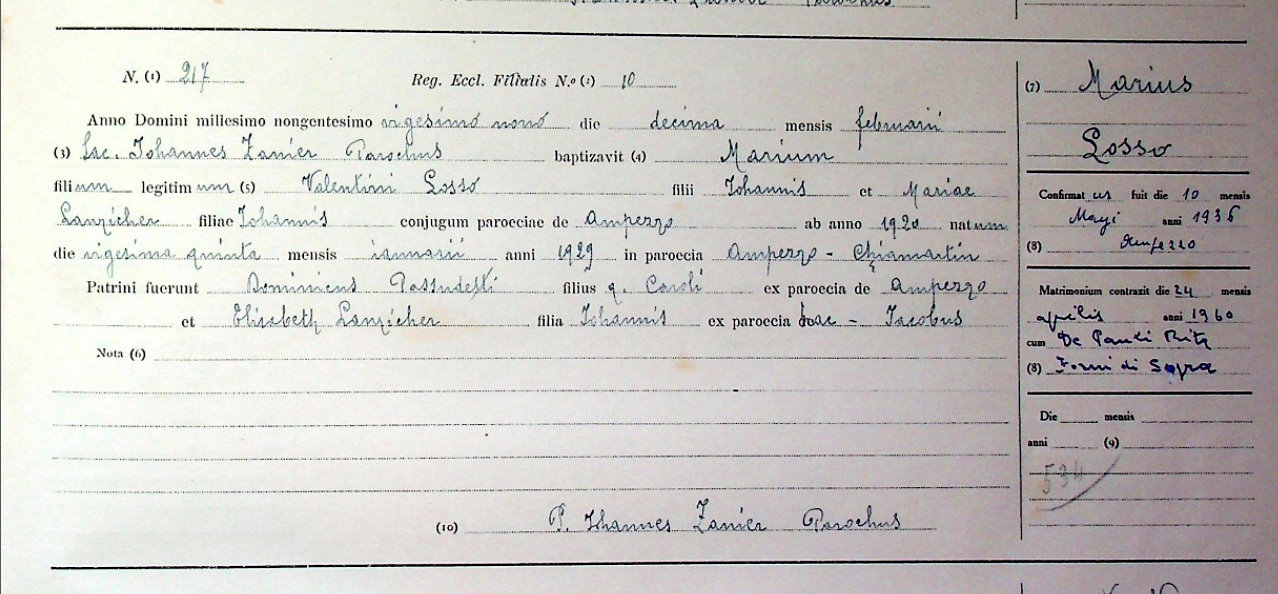 Parochus
N. (1) 217 Reg. Eccl. Filialis N.o (2) 10
Anno Domini millesimo nongentesimo vigesimo nono die decima mensis februarii
(3) Sac. Iohannes Zanier Parochus baptizavit (4) Marium
filium legitimum (5) Valentini Losso filii Iohannis et Mariae
Lanzicher filiae Iohannis conjugum paroeciae de Ampezzo ab anno 1920 natum
die vigesima quinta mensis ianuarii anni 1929 in paroecia Ampezzo - Chiamartin
Patrini fuerunt Dominicus filius q. Caroli ex paroecia de Ampezzo
et Elisabeth Lanzicher filia Iohannis ex paroecia - Iacobus
Nota (6)
(10) P. Iohannes Zanier Parochus
(7) Marius
Losso
Confirmatus fuit die 10 mensis
Maji anni 1936
(8) Ampezzo
Matrimonium contraxit die 24 mensis
aprilis anni 1960
cum De Pauli Rita
(8) Forni di Sopra
Die mensis
anni (9)
534